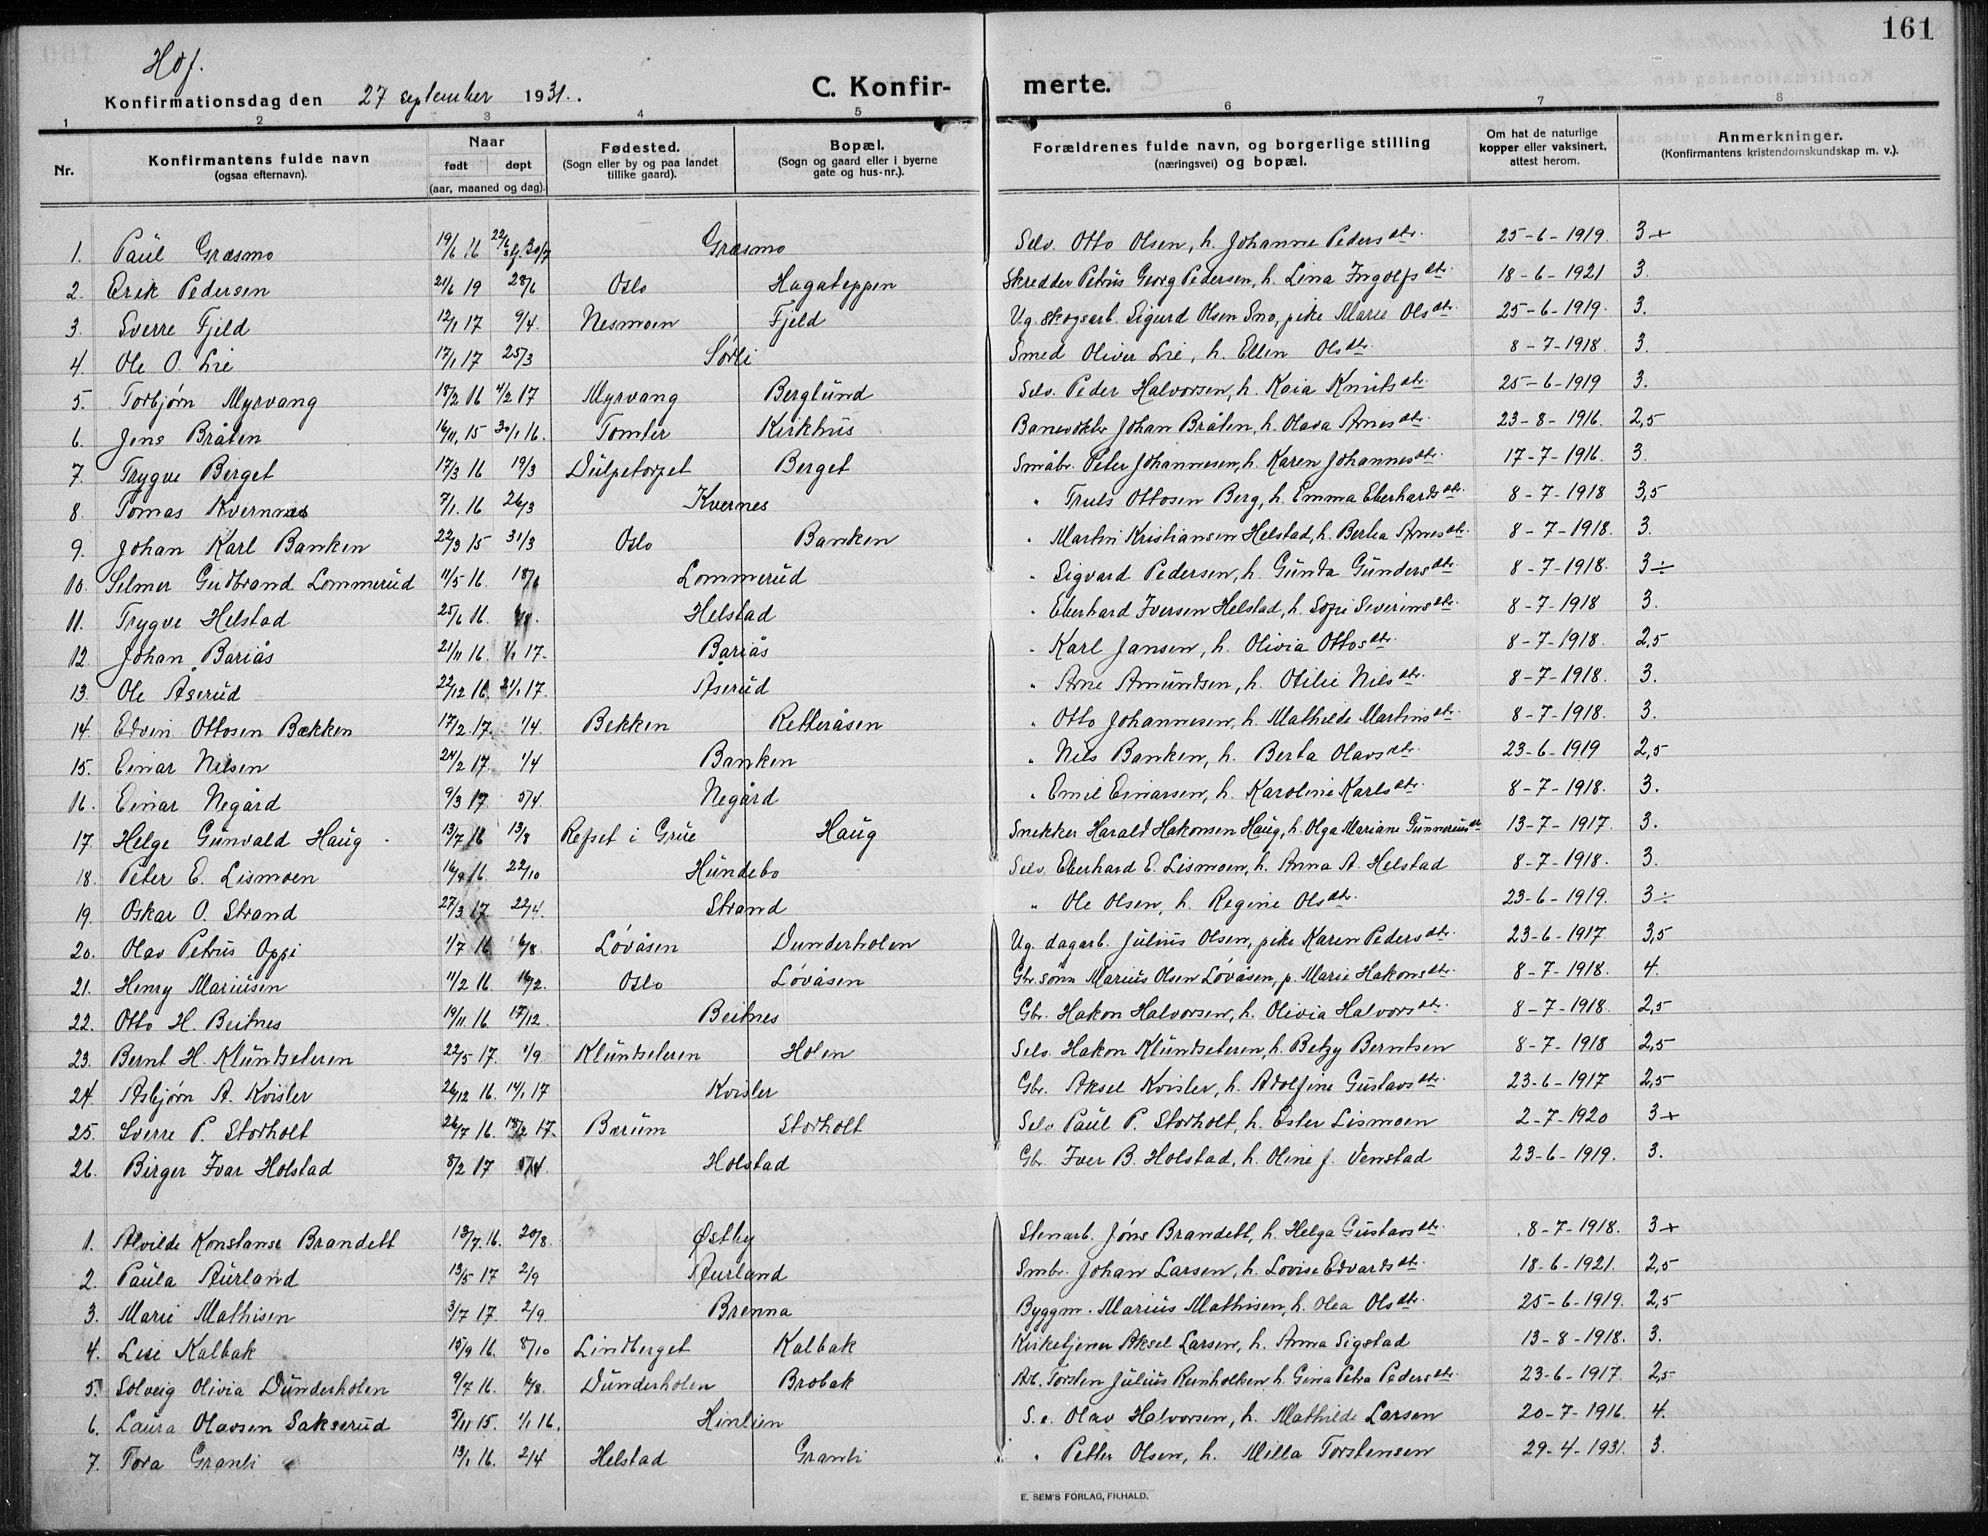 161
Hof.
Konfirmationsdag den 27 september 1931.
C. Konfirmerte.
1 2 3 4 5 6 7 8
Nr. Konfirmantens fulde navn (ogsaa efternavn). Naar født døpt (aar, maaned og dag). Fødested. (Sogn eller by og paa landet tillike gaard). Bopæl. (Sogn og gaard eller i byerne gate og hus-nr.). Forældrenes fulde navn, og borgerlige stilling (næringsvei) og bopæl. Om hat de naturlige kopper eller vaksinert, attest herom. Anmerkninger. (Konfirmantens kristendomskundskap m. v.).
1. Paul Græsmo 19/6 16 Græsmo Selv. Otto Olsen, h. Johanne Pedersdtr. 25-6-1919. 3+
2. Erik Pedersen 21/6 19 28/6 Oslo Hagateppen Skredder Petrus Georg Pedersen, h. Lina Ingolfsdtr. 18-6-1921 3.
3. Sverre Fjeld 12/1 17 9/4. Nesmoen Fjeld Ug. skogsarb. Sigurd Olsen Sno, pike Marie Olsdtr. 25-6-1919. 3.
4. Ole O. Lie 17/1 17 25/3 Sørli Smed Oliver Lie, h. Ellen Olsdtr. 8-7-1918. 3.
5. Torbjørn Myrvang 18/2 16 4/2 17 Myrvang Berglund Selv. Peder Halvorsen, h. Kaia Knutsdtr. 25-6-1919 3.
6. Jens Bråten 16/11 15 30/1 16. Tomter Kirkhus Banevokter Johan Bråten, h. Olava Arnesdtr. 23-8-1916. 2,5
7. Trygve Berget 17/3 16 19/3 Dulpetorpet Berget Småbr. Peter Johannesen, h. Karen Johannesdtr. 17-7-1916. 3.
8. Tomas Kvernnes 7/1. 16 26/3 Kvernes " Truls Ottosen Berg, h. Emma Eberhardsdtr. 8-7-1918 3,5
9. Johan Karl Banken 22/3 15 31/3 Oslo Banken " Martin Kristiansen Helstad, h. Berthea Arnesdtr. 8-7-1918. 3.
10. Selmer Gudbrand Lommerud 11/5 16. 18/6 Lommerud " Sigvard Pedersen, h. Gunda Gundersdtr. 8-7-1918. 3÷
11. Trygve Helstad 25/6 16. Helstad " Eberhard Iversen Helstad, h. Sofie Severinsdtr. 8-7-1918 3.
12. Johan Bariås 21/11 16. 1/1 17. Bariås " Karl Jansen, h. Olivia Ottosdtr. 8-7-1918. 2,5
13. Ole Åserud 22/12 16. 21/1 17. Åserud " Arne Amundsen, h. Otilie Nilsdtr. 8-7-1918. 3.
14. Edvin Ottosen Bækken 17/2 17. 1/4 Bekken Retteråsen " Otto Johannesen, h. Mathilde Martinsdtr. 8-7-1918. 3.
15. Einar Nilsen 24/2 17. 1/4 Banken " Nils Banken, h. Berta Olavsdtr. 23-6-1919 2,5
16. Einar Negård 9/3 17 5/4. Negård " Emil Einarsen, h. Karoline Karlsdtr. 8-7-1918. 3.
17. Helge Gunvald Haug 13/7 16 13/8 Refset i Grue Haug Snekker Harald Hakonsen Haug, h. Olga Mariane Gunneriusdtr. 13-7-1917. 3.
18. Peter E. Lismoen 16/9 16. 22/10 Hundebo Selv. Eberhard E. Lismoen, h. Anna A. Helstad 8-7-1918. 3.
19. Oskar O. Strand 27/3 17. 22/4. Strand " Ole Olsen, h. Regine Olsdtr. 23-6-1919. 3÷
20. Olav Petrus Oppi 1/7 16 6/8. Løvåsen Dunderholen Ug. dagarb. Julius Olsen, pike Karen Pedersdtr. 23-6-1917. 3,5
21. Henry Mariusen 11/2 16. 16/2. Oslo Løvåsen Gbr. sønn Marius Olsen Løvåsen, p. Marie Hakonsdtr. 8-7-1918. 4.
22. Otto H. Beitnes 19/11. 16. 17/12. Beitnes Gbr. Hakon Halvorsen, h. Olivia Halvorsdtr. 8-7-1918. 2,5
23. Bernt H. Kluntseteren 22/5 17. 1/9. Kluntseteren Holen Selv. Hakon Kluntseteren, h. Betzy Berntsen 8-7-1918 2,5
24. Asbjørn A. Kvisler 26/12 16. 14/1 17 Kvisler Gbr. Aksel Kvisler, h. Adolfine Gustavsdtr. 23-6-1917 2,5
25. Sverre P. Storholt 26/7 16. 18/2 17. Bærum Storholt Selv. Paul P. Storholt, h. Ester Lismoen 2-7-1920 3+
26. Birger Ivar Holstad 8/2 17 Holstad Gbr. Iver B. Holstad, h. Oline J. Venstad 23-6-1919. 3.
1. Alvilde Konstanse Brandett 13/7. 16. 20/8. Østby Stenarb. Jöns Brandett, h. Helga Gustavsdtr. 8-7-1918. 3+
2. Paula Aurland 13/5 17 2/9 Aurland Smbr. Johan Larsen, h. Lovise Edvardsdtr. 18-6-1921. 2,5
3. Marie Mathisen 3/7 17. 2/9. Brenna Byggm. Marius Mathisen, h. Olea Olsdtr. 25-6-1919. 2,5
4. Lise Kalbak 15/9 16. 8/10 Lindberget Kalbak Kirketjener Aksel Larsen, h. Anna Sigstad 13-8-1918. 3.
5. Solveig Olivia Dunderholen 9/7 16. 6/8. Dunderholen Brobak Arb. Torsten Julius Reinholtsen h. Gina Petra Pedersdtr. 23-6-1917. 2,5
6. Laura Olavsen Sakserud 5/11 15. 1/1 16. Hinlien S.e. Olav Halvorsen, h. Mathilde Larsen 20-7-1916. 4.
7. Tora Granli 13/1 16. 2/4 Helstad Granli " Petter Olsen, h. Milla Torstensen 29-4-1931. 3.
E. SEM'S FORLAG, FR.HALD.